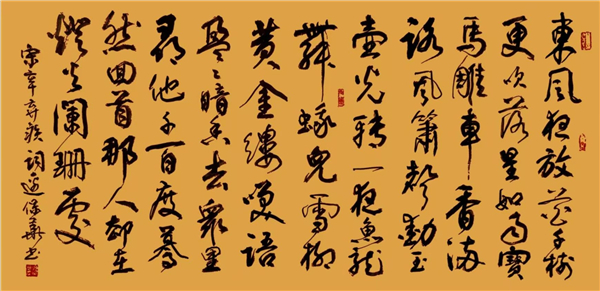 東風夜放花千樹
更吹落星如雨寶
馬雕車香滿
路風簫聲動玉
壺光轉一夜魚龍
舞蛾兒雪柳
黃金縷笑語
盈〻暗香去衆里
尋他千百度驀
然回首那人却在
燈火闌珊處
宋辛弃疾詞 保華书